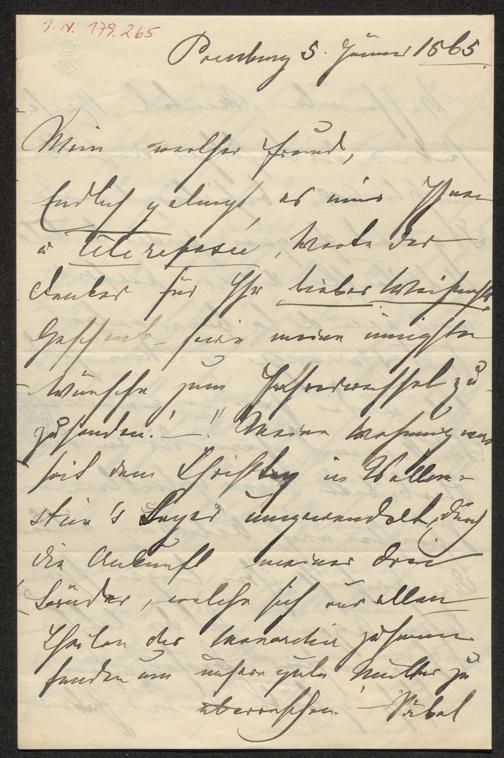 I. N. 179.265
Pressburg 5. Jänner 1865.
Mein werther Freund,
Endlich gelingt es mir Ihnen
à tête reposée, Worte des
Dankes für Ihr liebes Weihnachts
Geschenk – sowie meine innigsten
Wünsche zum Jahreswechsel zu-
zusenden. – ! Meine Wohnung war
seit dem Christtag in Wallen-
stein's Lager umgewandelt, durch
die Ankunft meiner drei
Brüder, welche sich aus allen
Theilen der Monarchie zusammen
fanden um unsere gute Mutter zu
überraschen!